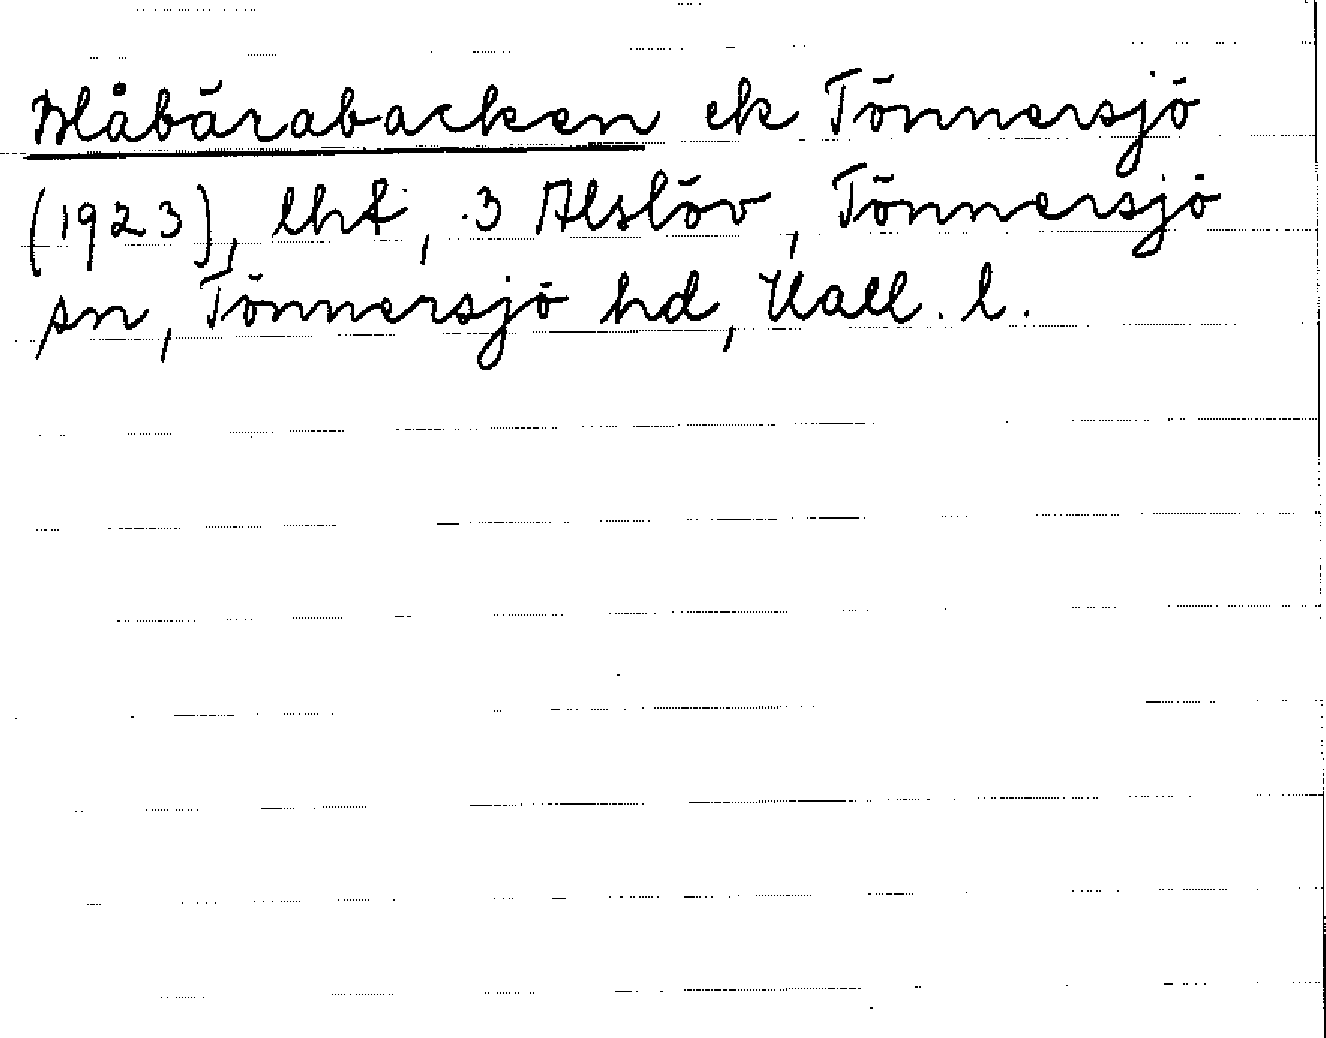 Blåbärabacken ek Tönnersjö
(1923), lht, 3 Alslöv, Tönnersjö
sn, Tönnersjö hd, Hall. l.